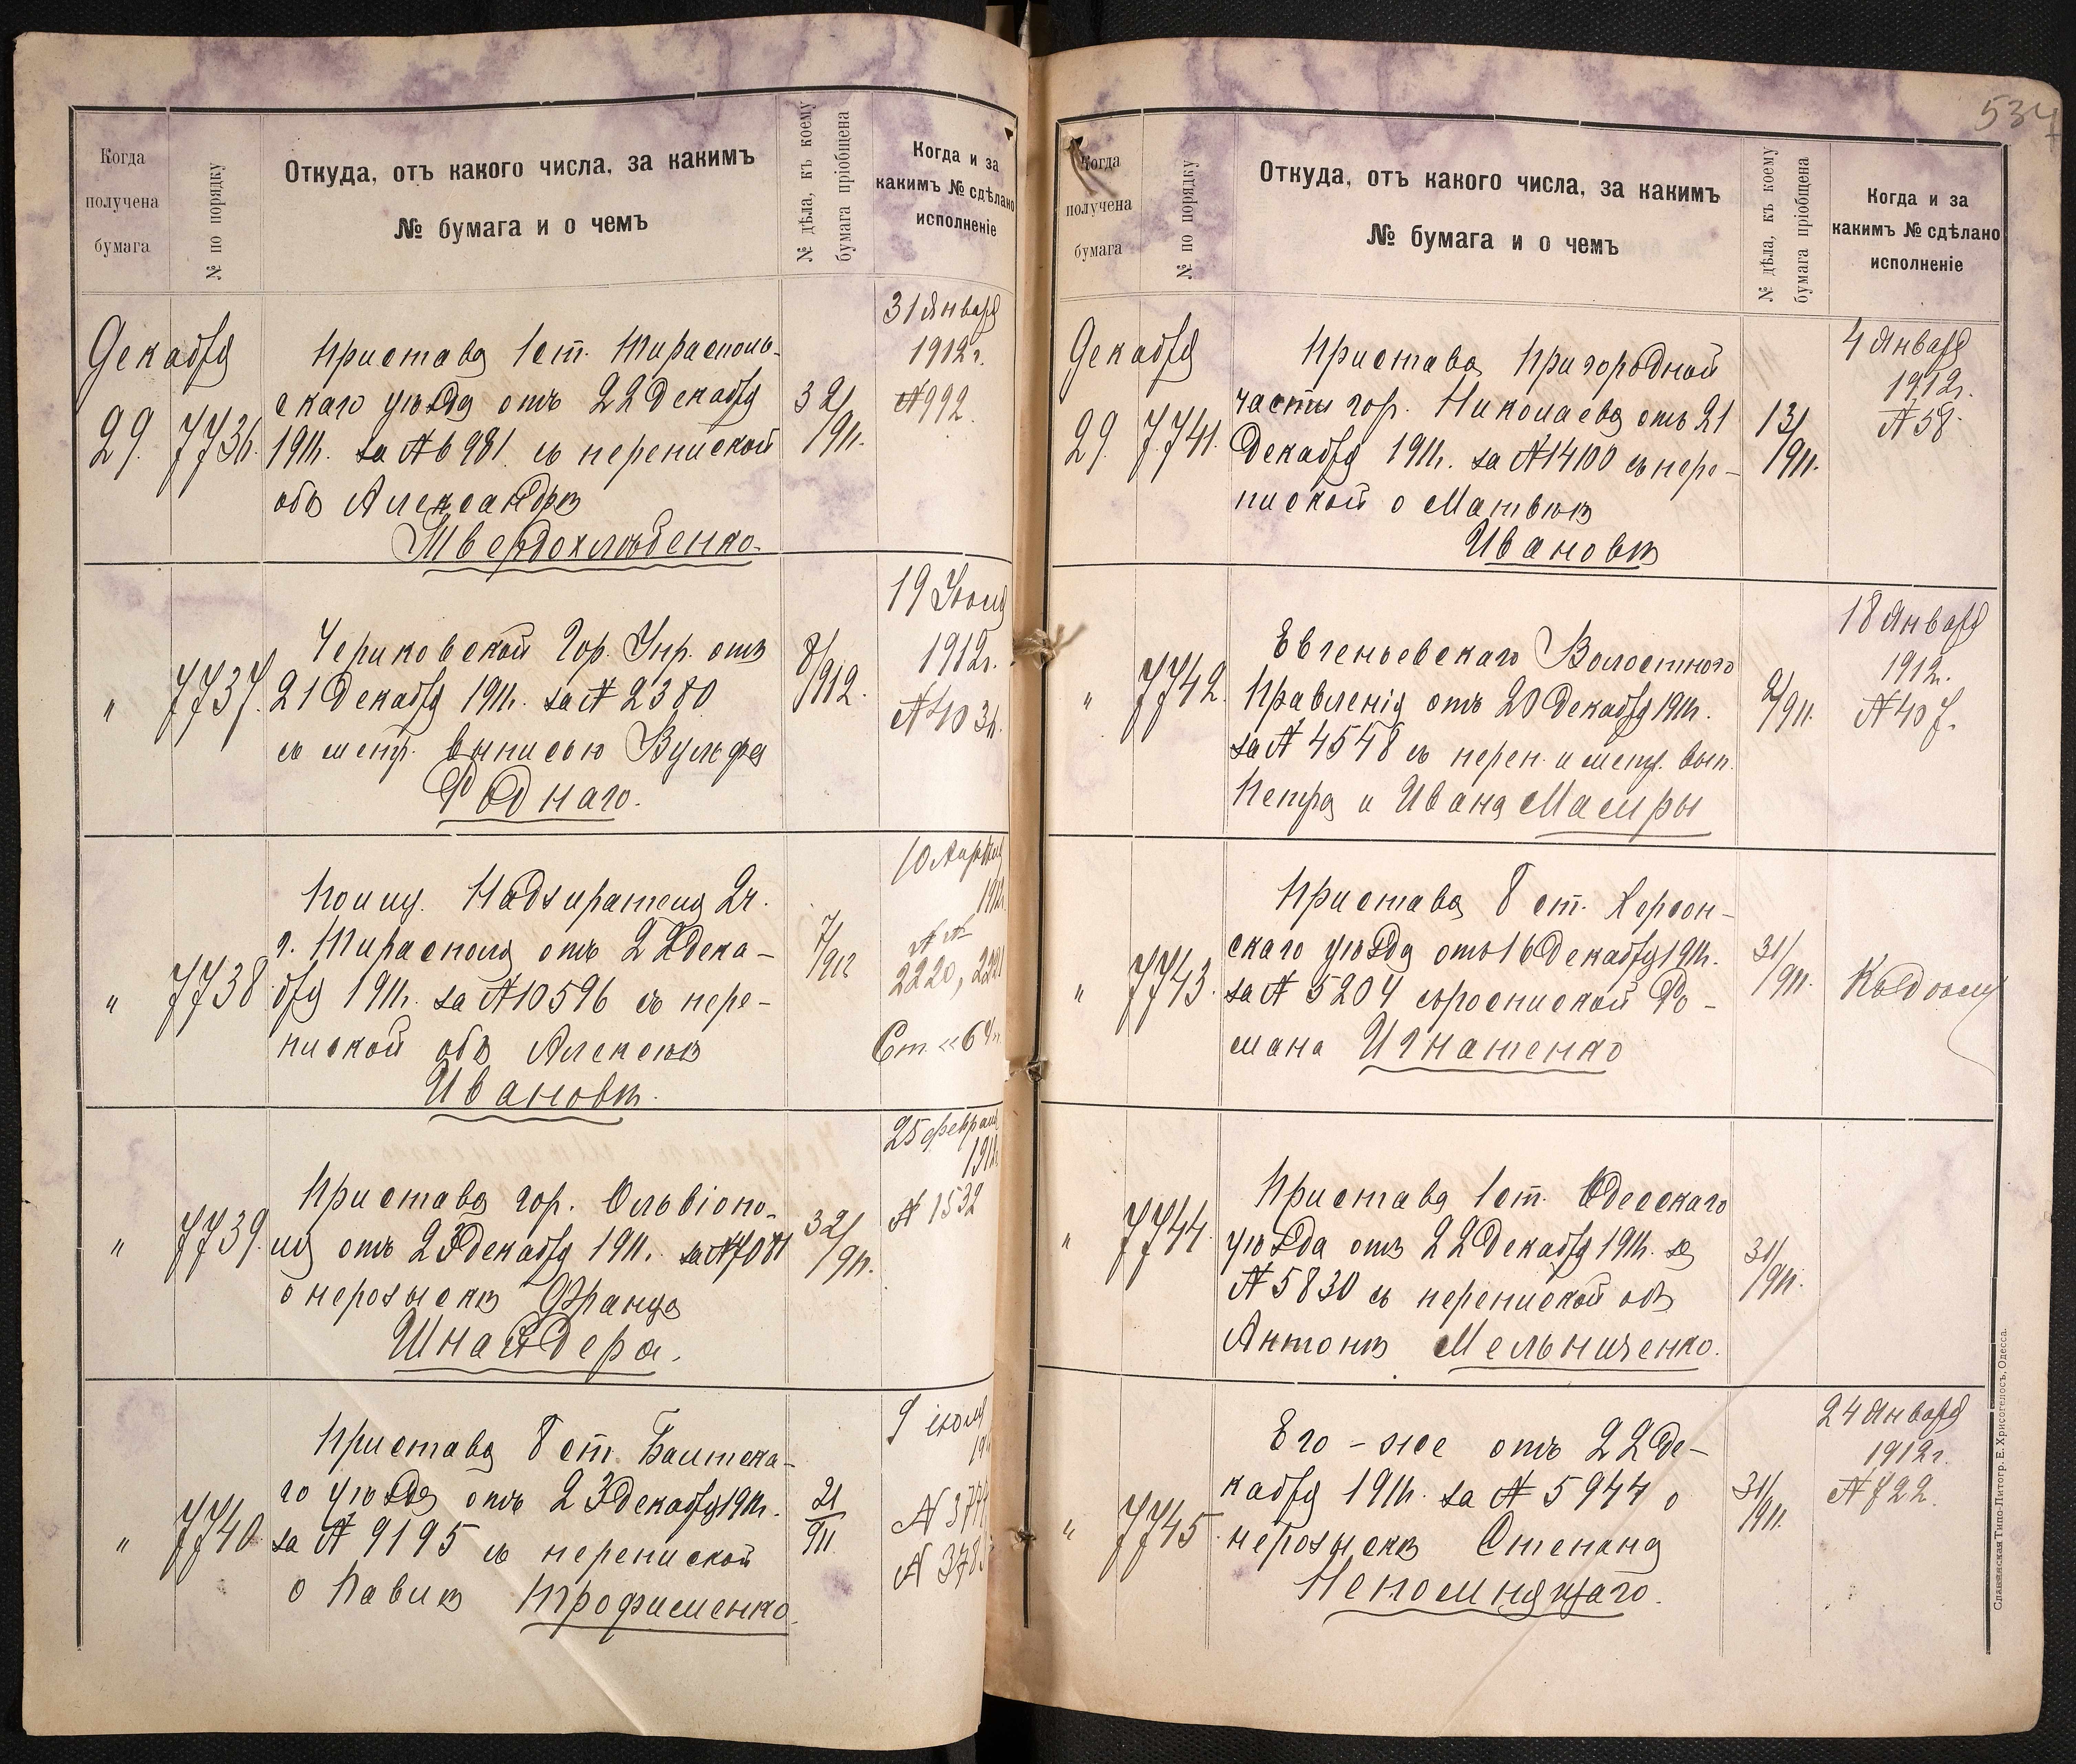 Когда
получена
бумага
№ по порядку
Откуда, отъ какого числа, за какимъ
№ бумага и о чемъ
№ дѣла, къ коему
бумага пріобщена
Когда и за
какимъ № сдѣлано
исполненіе
Декабря
29.
7736.
Пристава 1 ст. Тирасполь-
скаго уѣзда отъ 22 декабря
1911г. за № 6981 съ перепиской
объ Александрѣ
Твердохлѣбенко.
32/911.
31 Января
1912г.
№ 992.
"
7737.
Чериковской Гор. Упр. отъ
21 Декабря 1911г. за № 2380
съ метр. выписью Вульфа
Роднаго.
8/912.
19 Іюня
1912г.
"
7738
Полиц. Надзирателя 2 ч.
г. Тирасполя отъ 22 дека-
бря 1911г. за № 10596 съ пере-
пиской объ Алексеѣ
Ивановѣ.
7/912
10 Апрѣля
191
№№
2220, 2221
"
7739.
Пристава гор. Ольвіопо-
ля отъ 23 декабря 1911г. за № 7081
о нерозыскѣ Франца
Шнайдера.
32/911.
25 февраля
191
№ 1532
"
7740.
Пристава 8 ст. Балтска-
го уѣзда отъ 23 декабря 1911г.
за № 9195 съ перепиской
о Павлѣ Трофименко.
21/911
9 іюля
19
534
Когда
получена
бумага
№ по порядку
Откуда, отъ какого числа, за какимъ
№ бумага и о чемъ
№ дѣла, къ коему
бумага пріобщена
Когда и за
какимъ № сдѣлано
исполненіе
Декабря
29.
7741.
Пристава Пригородной
части гор. Николаева отъ 21
Декабря 1911г. за № 14100 съ пере-
пиской о Матвѣѣ
Ивановѣ
13/911.
4 Января
1912г.
№ 58.
"
7742.
Евгеньевскаго Волостного
Правленія отъ 20 Декабря 1911г.
за № 4548 съ переп. и метр. вып.
Петра и Ивана Мамры
2/911.
18 Января
1912г.
№ 407.
"
7743.
Пристава 8 ст. Херсон-
скаго уѣзда отъ 16 Декабря 1911г.
за № 5204 съ роспиской Ро-
мана Игнатенко
31/911.
Къ дѣлу
"
7744.
Пристава 1 ст. Одесскаго
уѣзда отъ 22 Декабря 1911г. за
№ 5830 съ перепиской объ
Антонѣ Мельниченко.
31/911.
"
7745.
Его-же отъ 22 Де-
кабря 1911г. за № 5944 о
нерозыскѣ Степана
Непомнящаго.
31/911.
24 Января
1912г.
№ 722.
Славянская Типо-Литогр. Е. Хрисогелосъ, Одесса.